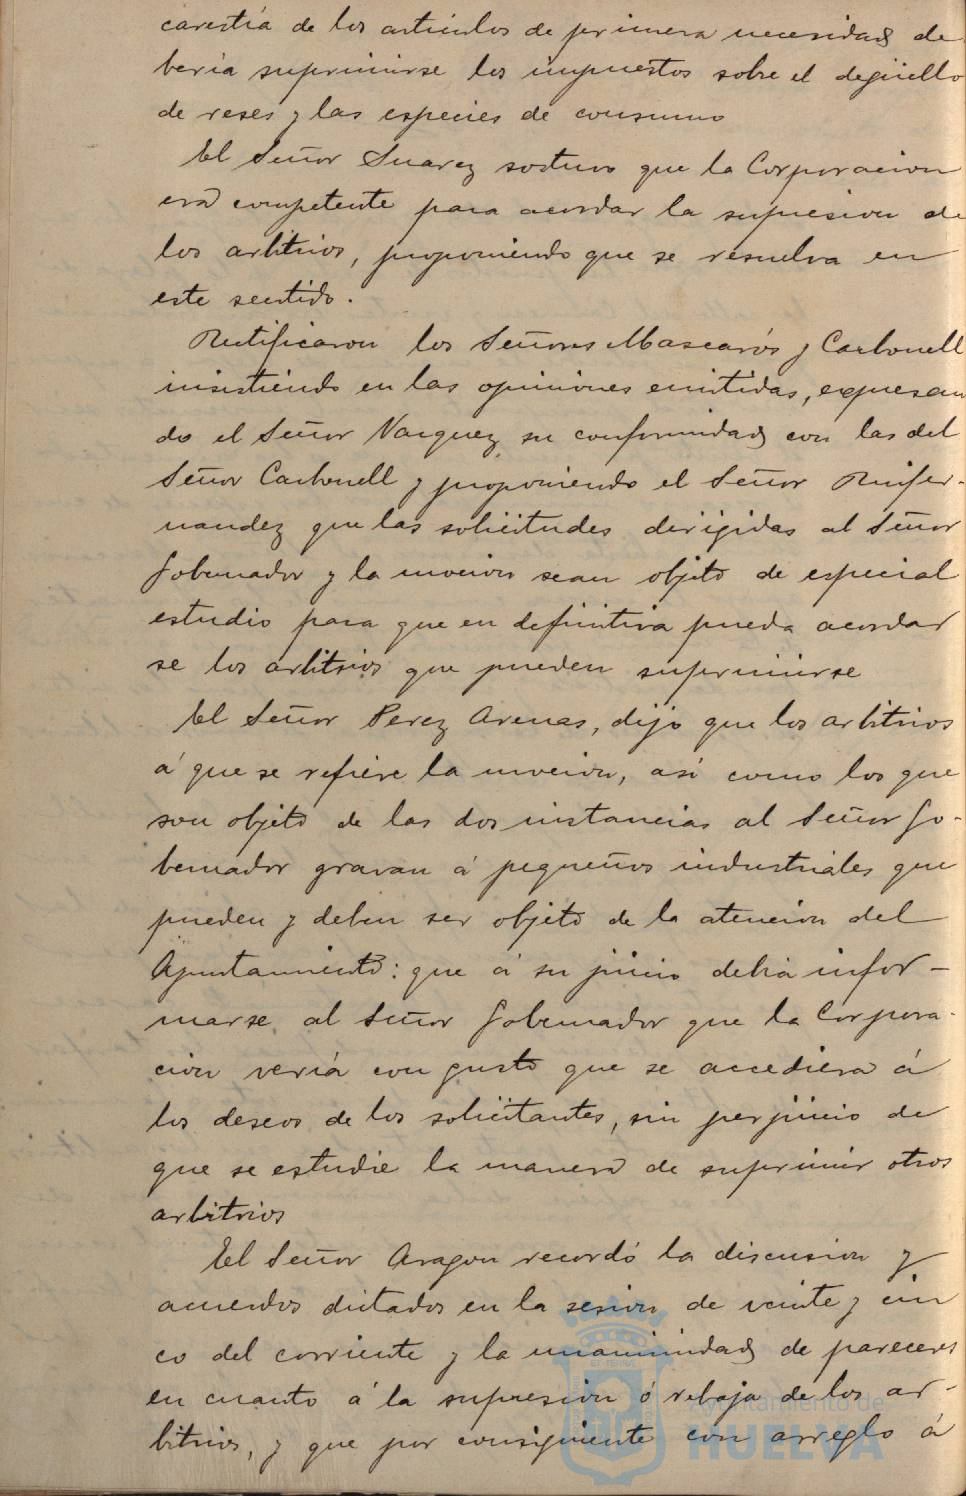 carestía de los artículos de primera necesidad de
bería suprimirse los impuestos sobre el degüello
de reses y las especies de consumo
El Señor Suarez sostuvo que la Corporacion
era competente para acordar la supresion de
los arbitrios, proponiendo que se resuelva en
este sentido.
Rectificaron los Señores Mascarós y Carbonell
insistiendo en las opiniones emitidas, expresan
do el Señor Vazquez su conformidad con las del
Señor Carbonell y proponiendo el Señor Ruifer-
nandez que las solicitudes dirigidas al Señor
Gobernador y la mocion sean objeto de especial
estudio para que en definitiva pueda acordar
se los arbitrios que pueden suprimirse
El Señor Perez Arenas, dijo que los arbitrios
á que se refiere la mocion, asi como los que
son objeto de las dos instancias al Señor Go-
bernador gravan á pequeños industriales que
pueden y deben ser objeto de la atencion del
Ayuntamiento: que á su juicio debia infor-
marse al Señor Gobernador que la Corpora-
cion vería con gusto que se accediera á
los deseos de los solicitantes, sin perjuicio de
que se estudie la manera de suprimir otros
arbitrios
El Señor Aragon recordó la discusion y
acuerdos dictados en la sesion de veinte y cin
co del corriente y la unanimidad de pareceres
en cuanto á la supresion ó rebaja de los ar-
bitrios, y que por consiguiente con arreglo á
Ayuntamiento de
HUELVA